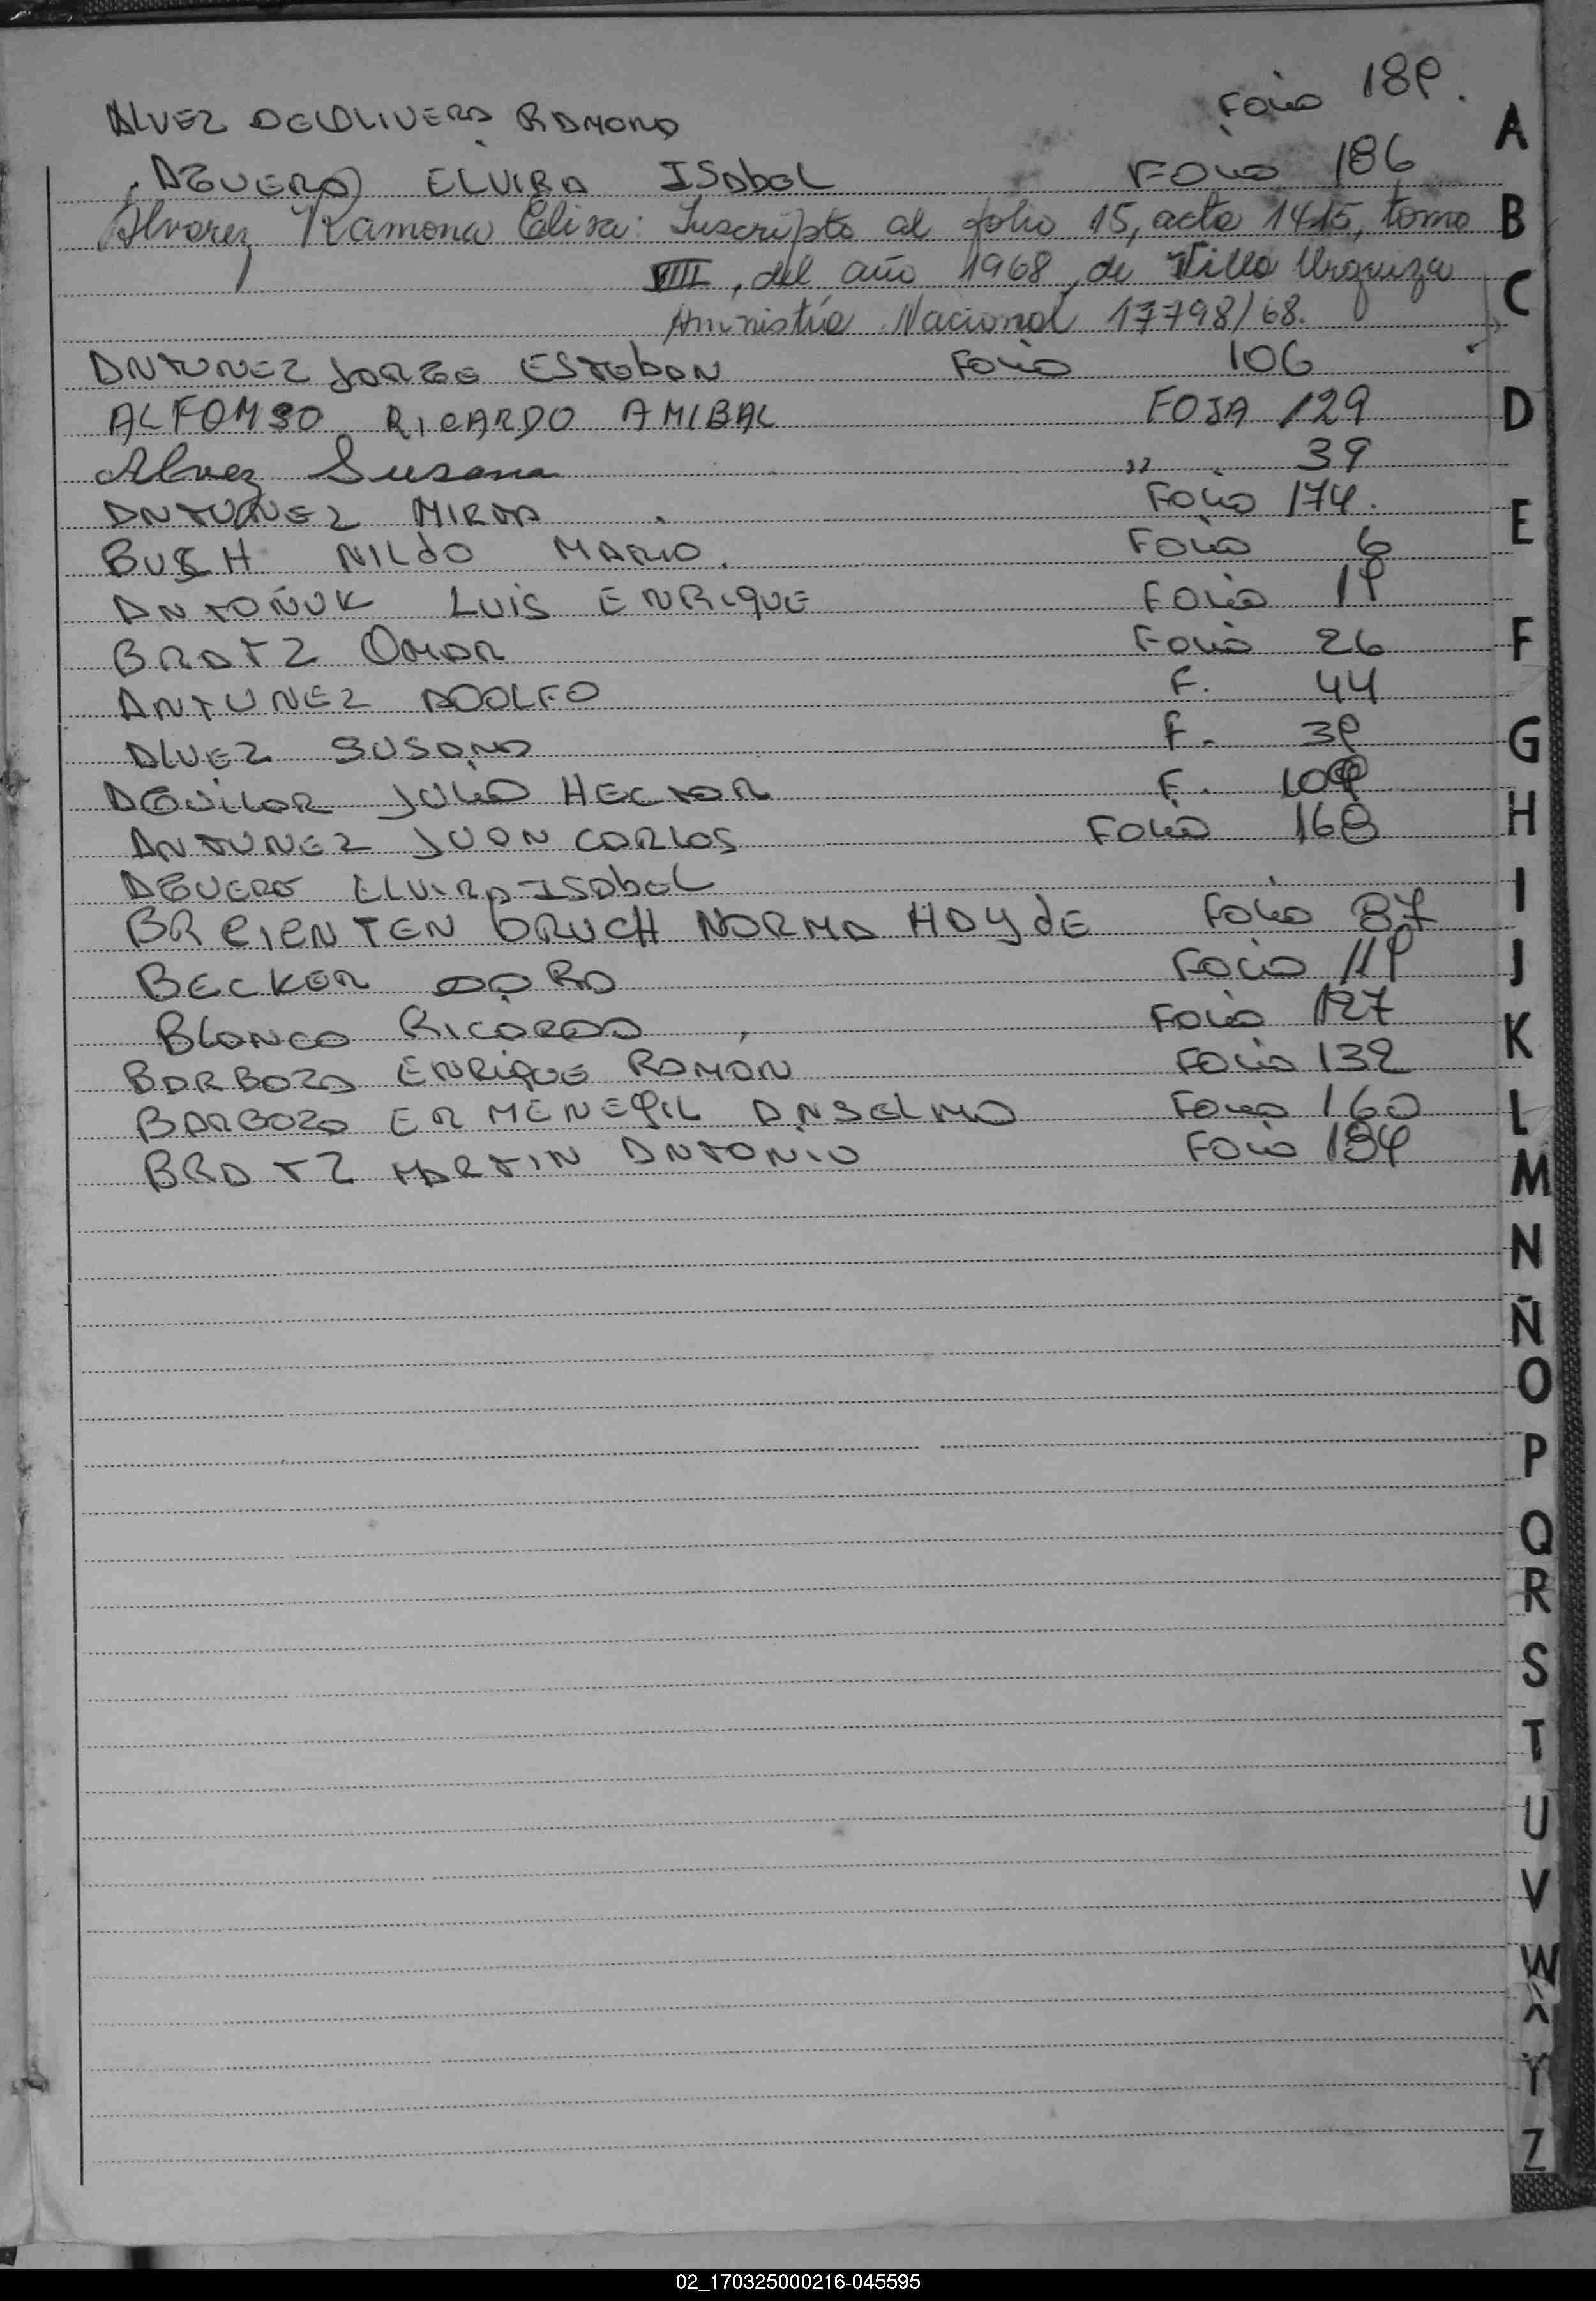 ALVEZ DELOLIVERA RAMONA Folio 189.
AGUERO ELVIRA ISAbEL FOLIO 186
Alvarez Ramona Elisa: Inscripto al folio 15, acta 1415, tomo
VIII, del año 1968, de Villa Urquiza
Aministía Nacional 17798/68.
ANTUNEZ JORGE ESTEbAN FOLIO 106
ALFONSO RICARDO AMIBAL FOJA 129
Alvez Susana " 39
ANTUNEZ MIRTA FOLIO 174.
BUSH NILdO MARIO. FOLIO 6
ANTOÑUK LUIS ENRIQUE FOLIO 19
BRATZ OMAR FOLIO 26
ANTUNEZ ADOLFO F. 44
ALVEZ SUSANA F. 39
AGUILAR JULIO HECTOR F. 109
ANTUNEZ JUAN CARLOS FOLIO 168
AGUERO ELVIRA ISAbEL
BREIENTEN bRUCH NORMA HAYdE FOLIO 87
BECKER DORA FOLIO 119
BLANCO RICARDO FOLIO 127
BARBOZA ENRIQUE RAMON FOLIO 132
BARBOZA ERMENEGIL ANSELMO FOLIO 160
BRATZ MARTIN ANTONIO FOLIO 184
A
B
C
D
E
F
G
H
I
J
K
L
M
N
Ñ
O
P
Q
R
S
T
U
V
W
X
Y
Z
02_170325000216-045595